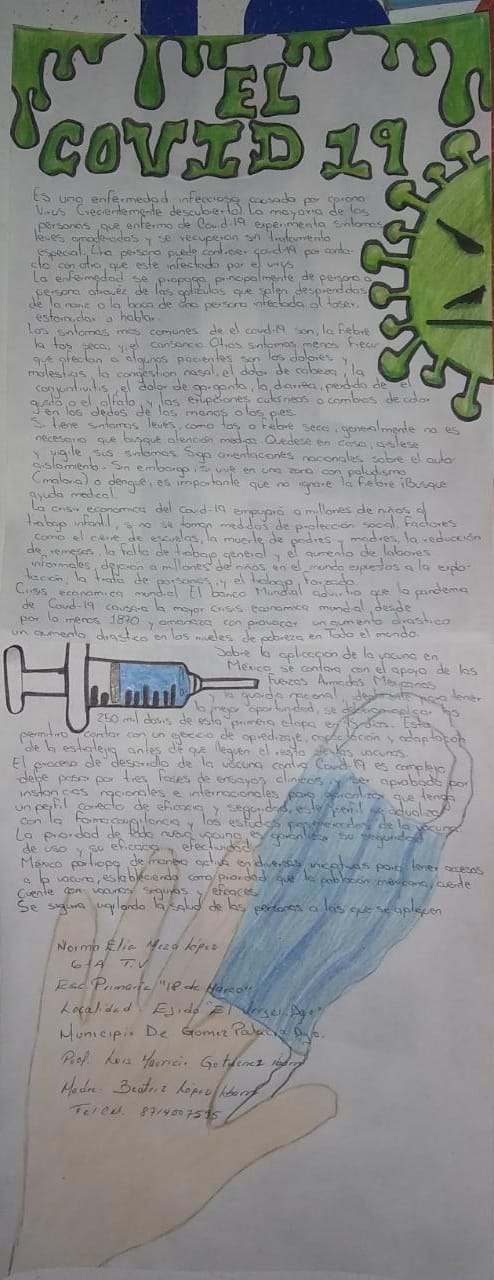 EL
COVID 19
Es una enfermedad infecciosa causada por corona
Virus (recientemente descubierto) La mayoria de las
personas que enferma de Covid-19 experimenta sintomas
leves o moderados y se recuperan sin tratamiento
especial. Una persona puede contraer covid-19 por conta
cto con otra que este infectado por el virus
La enfermedad se propaga principalmente de persona a
persona atravéz de las gotículas que salen desprendidas
de la nariz o la boca de una persona infectada al toser,
estornudar o hablar.
Los sintomas mas comunes de el covid-19 son, la fiebre
la tos seca, y el cansancio. Otros sintomas menos frecuen
que afectan a algunos pacientes son los dolores y
molestias, la congestion nasal, el dolor de cabeza, la
conjuntivitis, el dolor de garganta, la diarrea, perdida de el
gusto o el olfato, y las erupciones cutaneas o cambios de color
en los dedos de las manos o los pies.
Si tiene sintomas leves, como tos o fiebre seca, generalmente no es
necesario que busque atención medica. Quedese en casa, aislese
y vigile sus sintomas. Siga orientaciones nacionales sobre el auto
aislamiento. Sin embargo, si vive en una zona con paludismo
(malaria) o dengue, es importante que no ignore la fiebre ¡Busque
ayuda medica!
La crisis economica del Covid-19 empujara a millones de niños al
trabajo infantil, si no se toman medidas de protección social. Factores
como el cierre de escuelas, la muerte de padres y madres, la reducción
de remesas, la falta de trabajo general y el aumento de labores
informales, dejarian a millones de niños en el mundo expuestos a la explo-
tación, la trata de personas, y el trabajo forzado.
Crisis economica mundial El banco Mundial advirtio que la pandemia
de Covid-19 causaria la mayor crisis economica mundial, desde
por lo menos 1870 y amenaza con provocar un aumento drastico
un aumento drastico en los niveles de pobreza en Todo el mundo.
Sobre la aplicación de la vacuna en
México se contara con el apoyo de las
Fuerzas Armadas Mexicanas
y la guardia nacional, para tener
la mejor oportunidad, se
250 mil dosis de esta primera etapa en Esto
permitira contar con un ejercicio de aprendizaje, y adaptación
de la estrategia antes de que lleguen el resto de las vacunas.
El proceso de desarrollo de la vacuna contra Covid-19 es complejo
debe pasar por tres fases de ensayos clinicos y ser aprobada por
instancias nacionales e internacionales para garantizar que tenga
un perfil correcto de eficacia y seguridad, este perfil se actualiza
con la farmacovigilancia y los estudios de la vacuna.
La prioridad de toda nueva vacuna es garantizar su seguridad
de uso y su eficacia y efectividad.
México participa de manera activa en diversas iniciativas para tener accesos
a la vacuna, estableciendo como prioridad que la población mexicana, cuente
cuente con vacunas seguras y eficaces
Se seguira vigilando la salud de las personas a las que se apliquen
Norma Elia Meza López
6-A T.V
Esc. Primaria "18 de Marzo"
Localidad. Ejido "El Vergel, Dgo"
Municipio De Gomez Palacio, Dgo.
Prof. Luis Mauricio Gutierrez
Madre. Beatriz López
Tel Cel. 8714007595